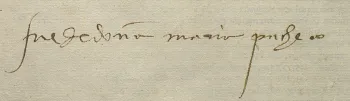 fue de doña maria pache co